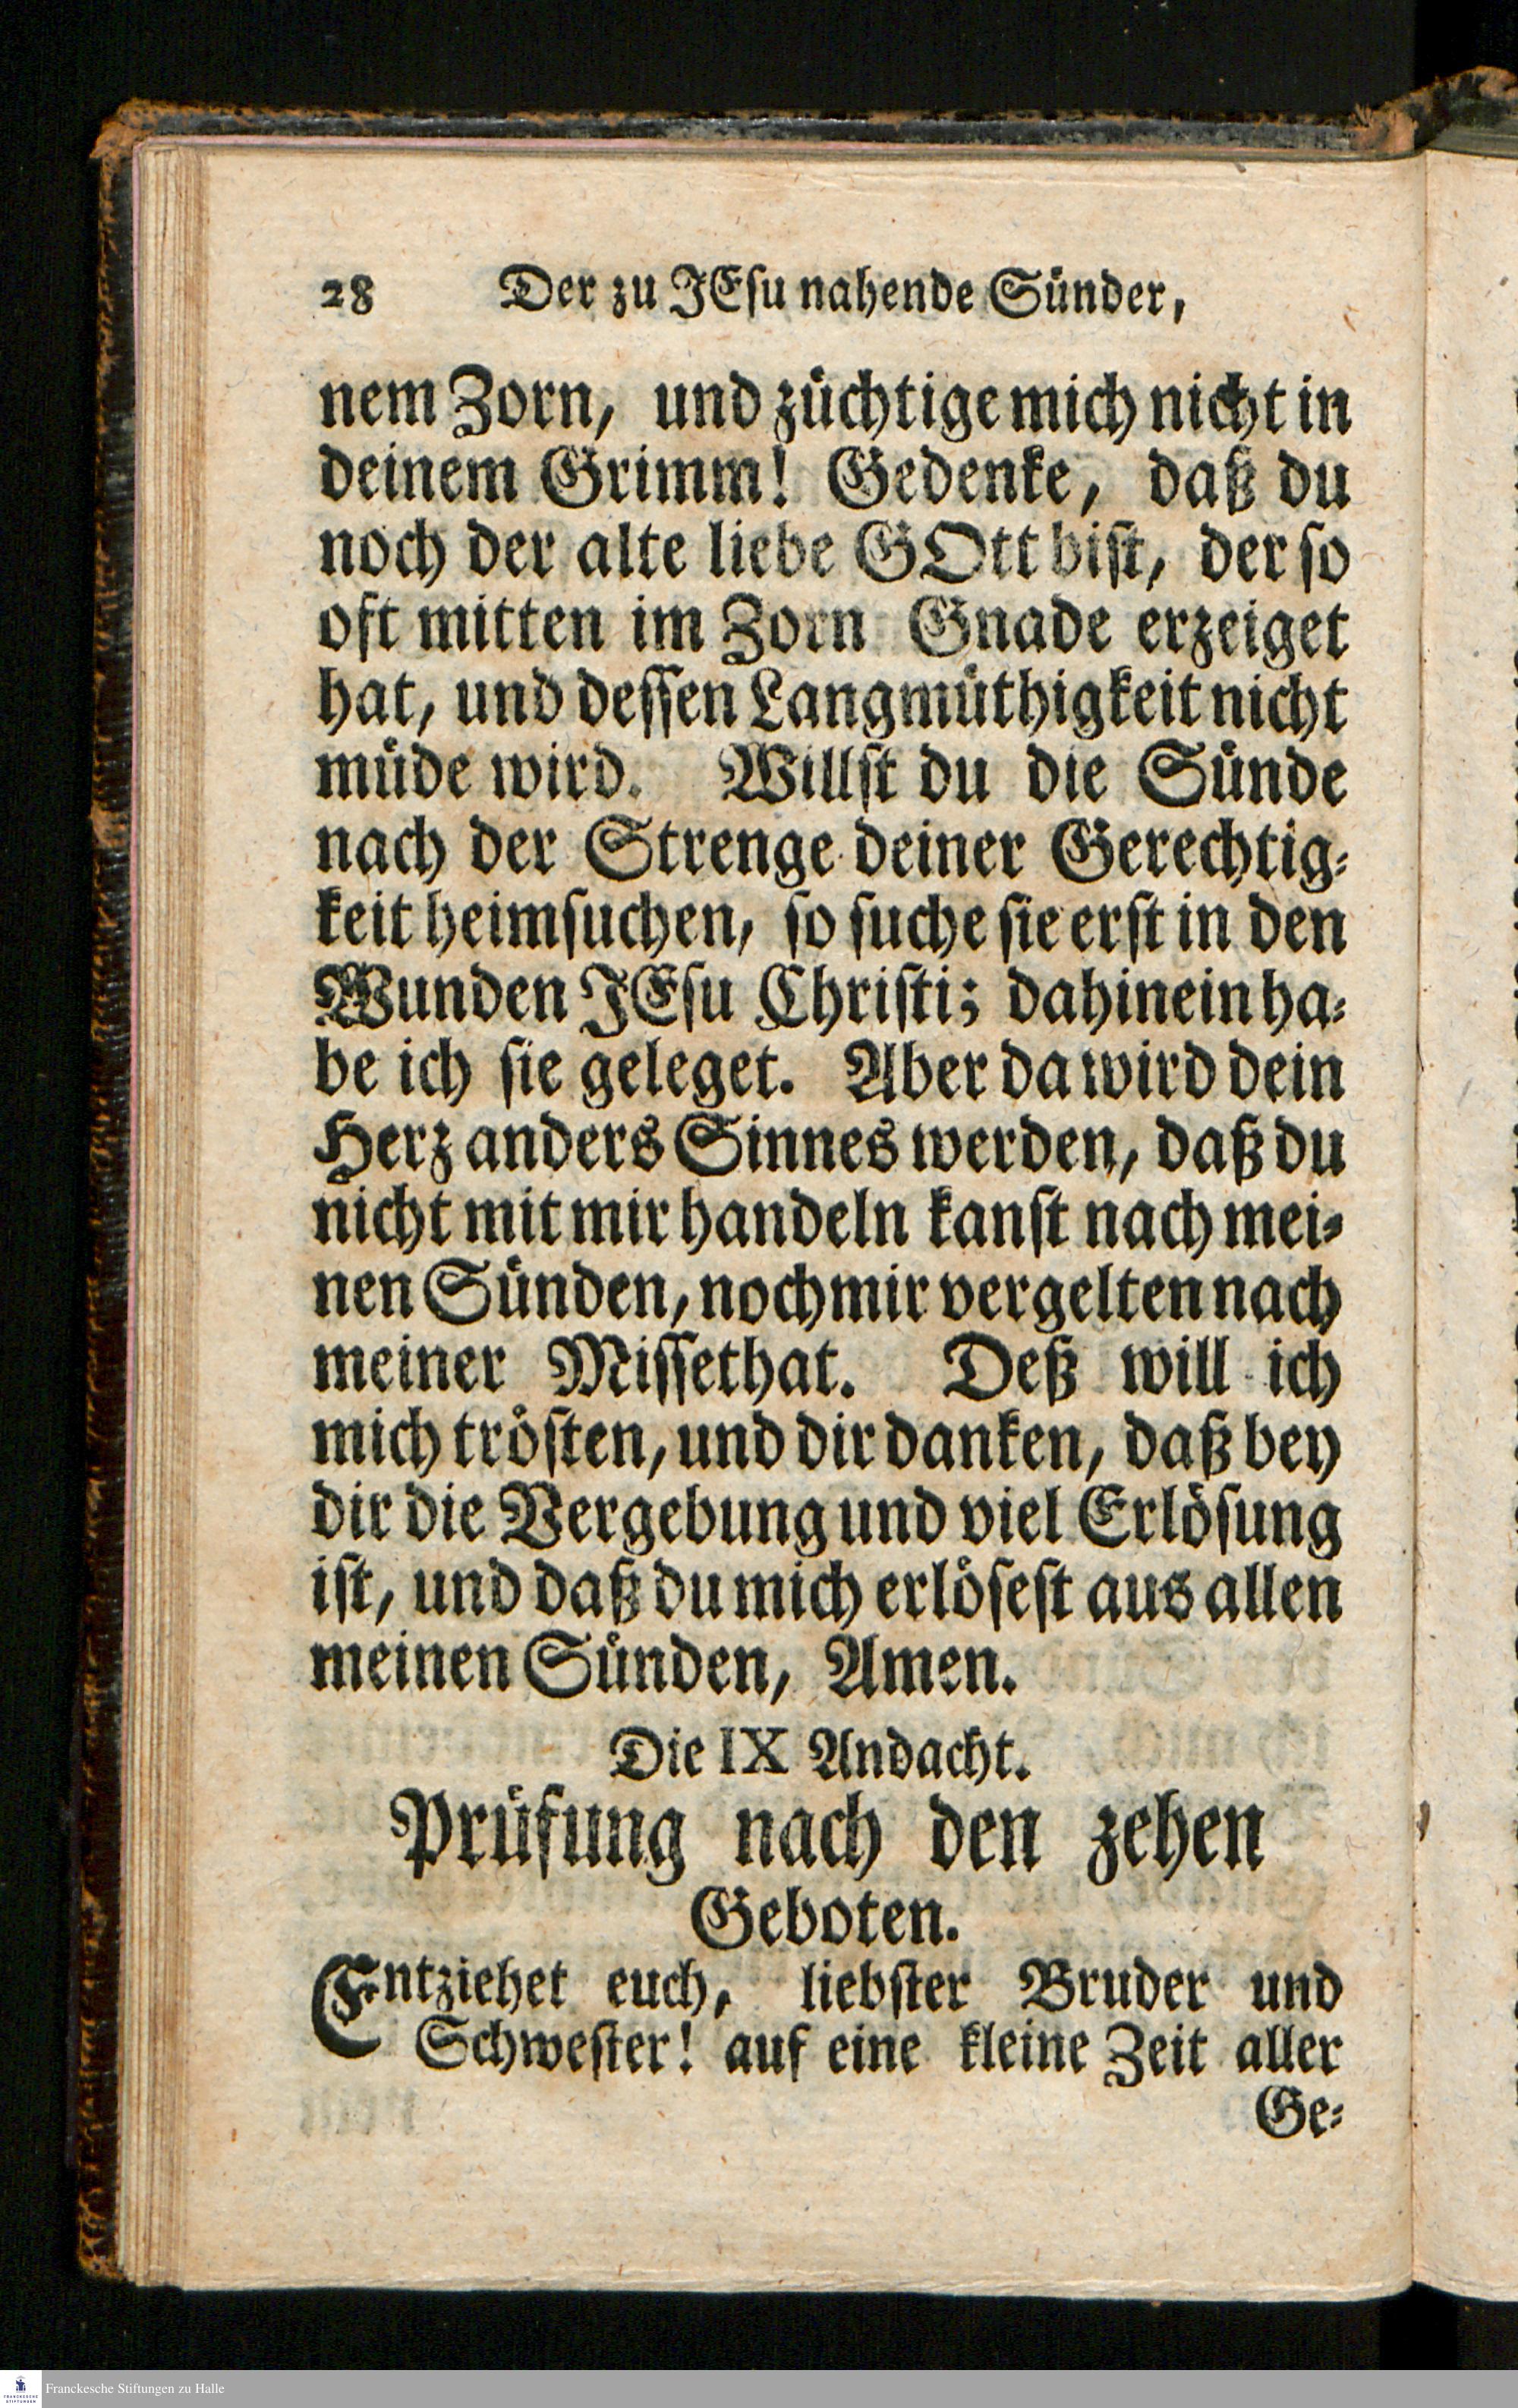 28 Der zu JEsu nahende Sünder,
nem Zorn, und züchtige mich nicht in
deinem Grimm! Gedenke, daß du
noch der alte liebe GOtt bist, der so
oft mitten im Zorn Gnade erzeiget
hat, und dessen Langmüthigkeit nicht
müde wird. Willst du die Sünde
nach der Strenge deiner Gerechtig-
keit heimsuchen, so suche sie erst in den
Wunden JEsu Christi; dahinein ha-
be ich sie geleget. Aber da wird dein
Herz anders Sinnes werden, daß du
nicht mit mir handeln kanst nach mei-
nen Sünden, noch mir vergelten nach
meiner Missethat. Deß will ich
mich trösten, und dir danken, daß bey
dir die Vergebung und viel Erlösung
ist, und daß du mich erlösest aus allen
meinen Sünden, Amen.
Die IX Andacht.
Prüfung nach den zehen
Geboten.
Entziehet euch, liebster Bruder und
Schwester! auf eine kleine Zeit aller
Ge-
FRANCKESCHE
STIFTUNGEN
Franckesche Stiftungen zu Halle